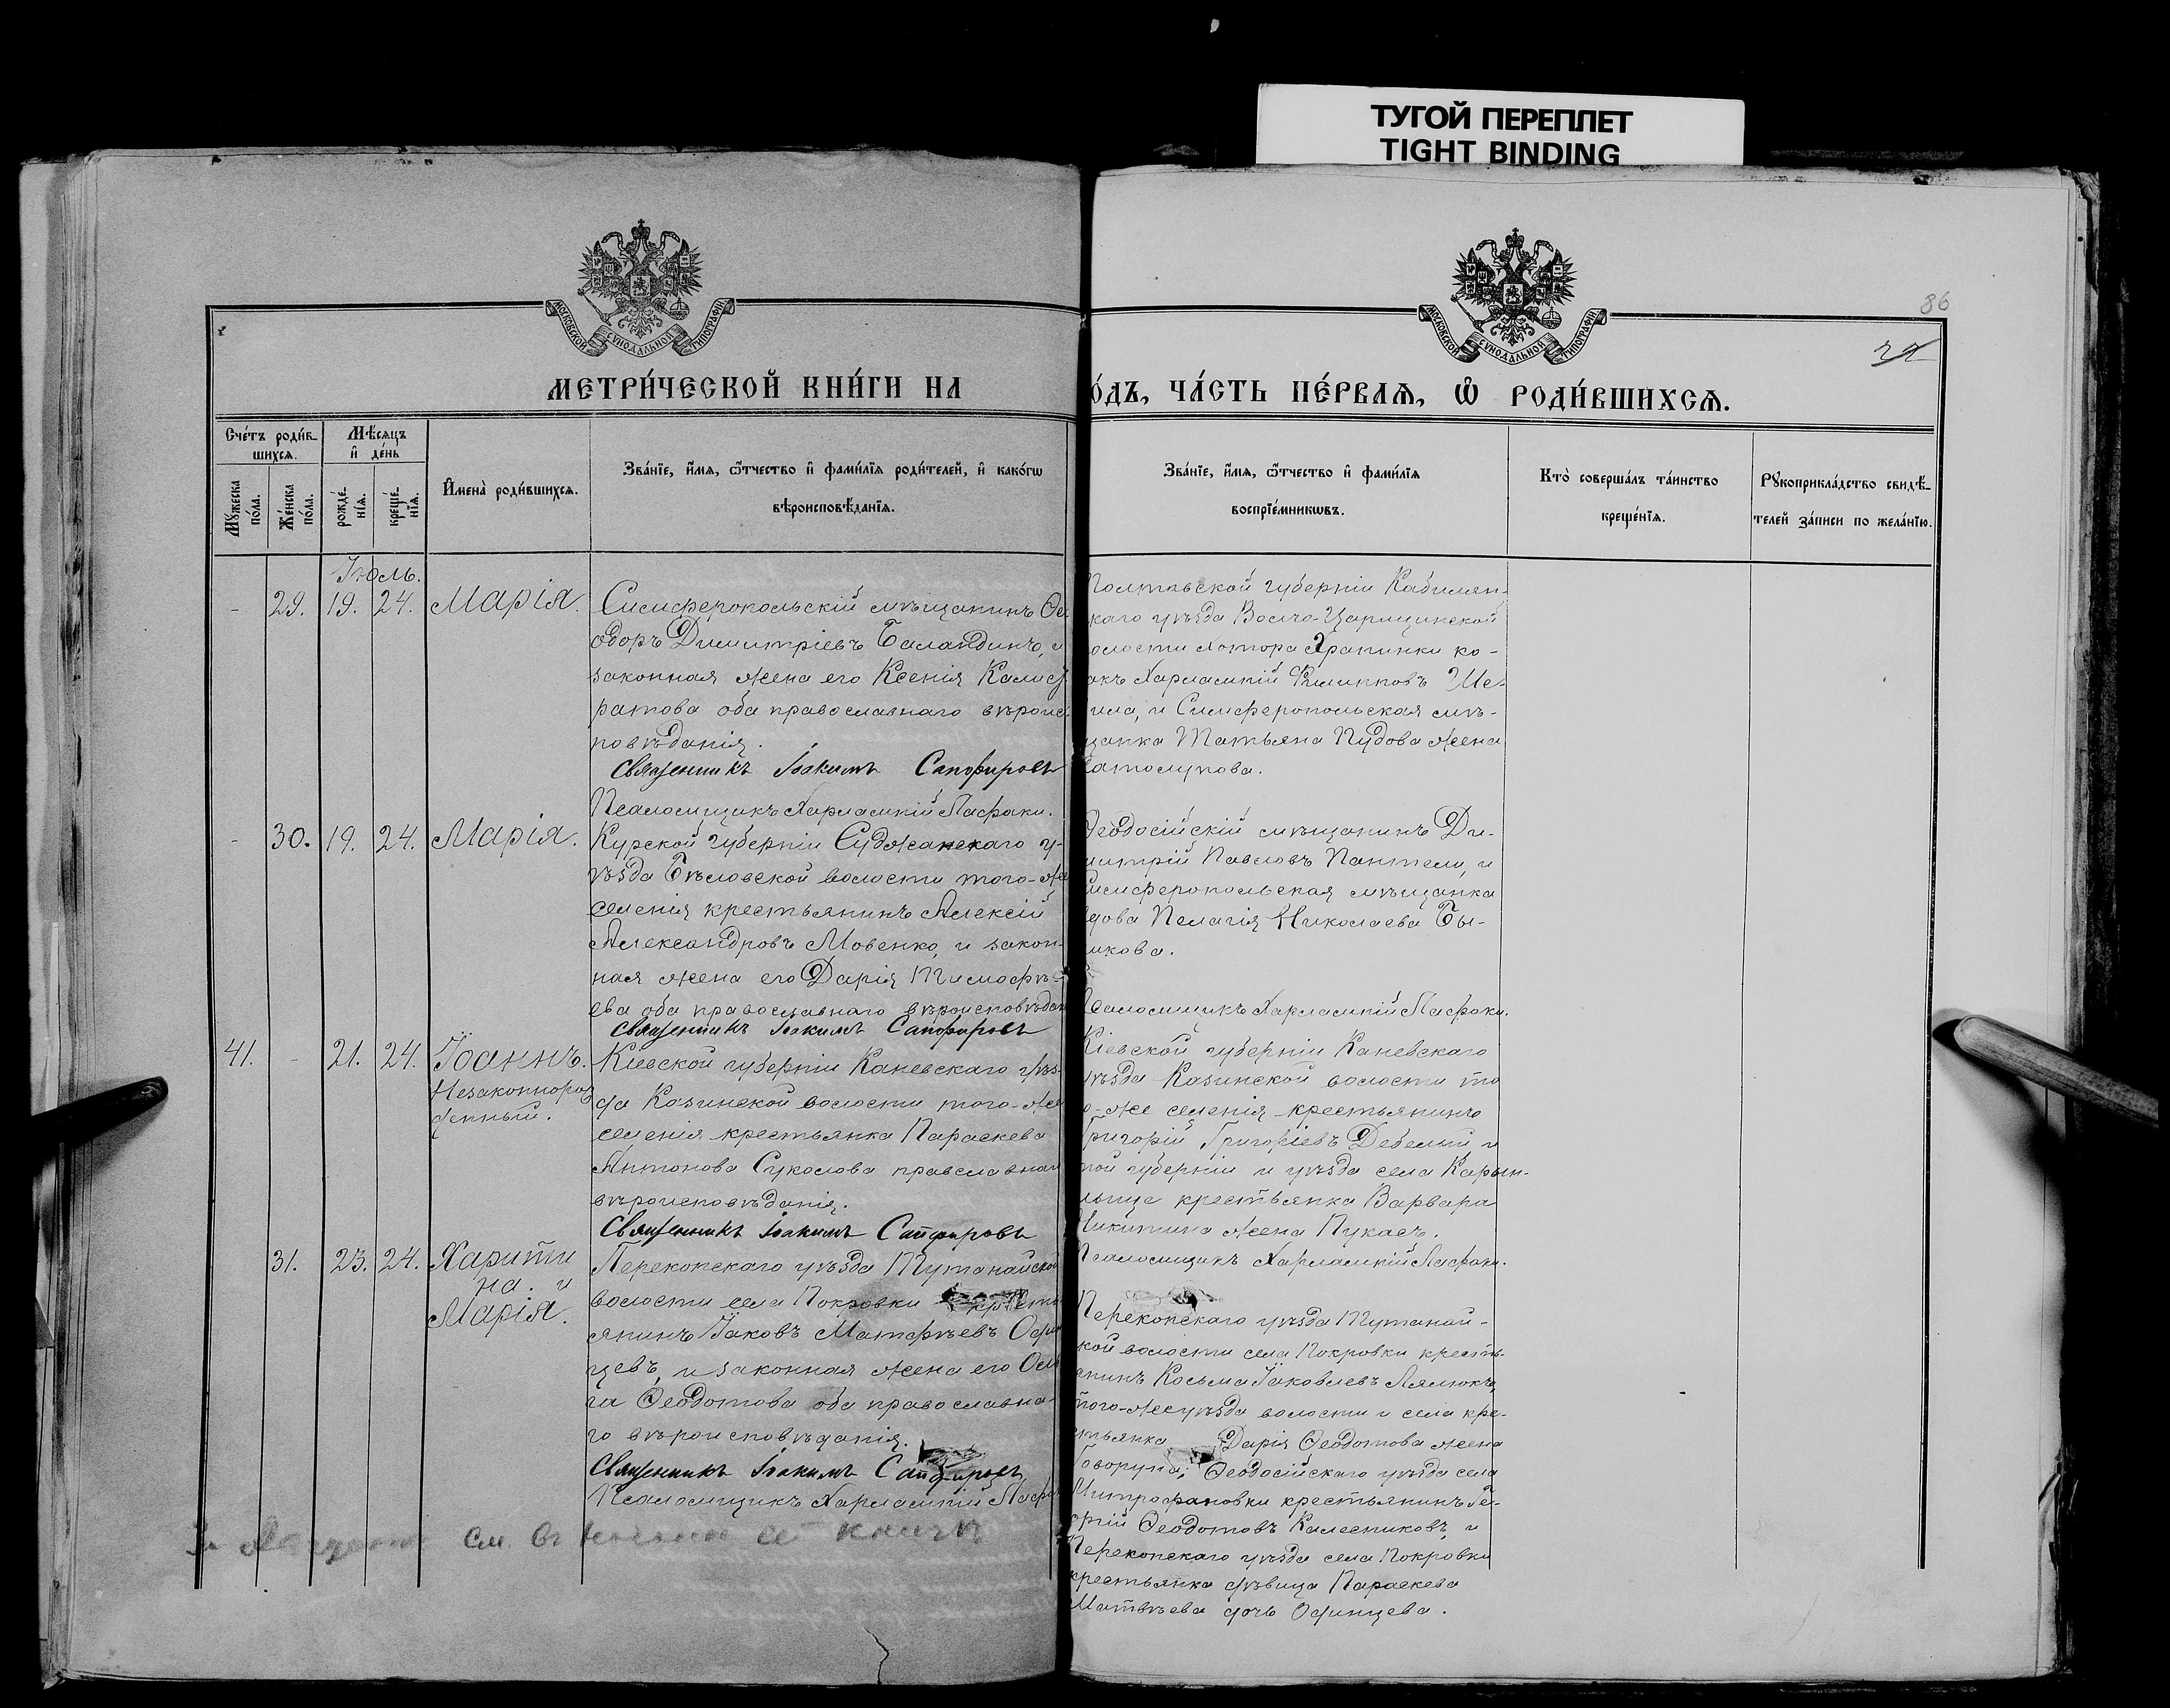 ТУГОЙ ПЕРЕПЛЕТ
TIGHT BINDING
МОСКОВСКОЙ СѴНОДАЛЬНОЙ ТИПОГРАФІИ
МОСКОВСКОЙ СѴНОДАЛЬНОЙ ТИПОГРАФІИ
86
22
МЕТРИ́ЧЕСКОЙ КНИ́ГИ НА
О́ДЪ, ЧА́СТЬ ПЕ́РВАѦ, Ѡ РОДИ́ВШИХСѦ.
Сче́тъ роди́в-
шихсѧ.
Мꙋжеска по́ла.
Же́нска по́ла.
Мѣ́сѧцъ
и҆ де́нь
рожде́-
нїѧ.
креще́-
нїѧ.
И҆мена̀ роди́вшихсѧ.
Зва́нїе, и҆́мѧ, ѻ҆́тчество и҆ фами́лїѧ роди́телей, и҆ како́гѡ
вѣроисповѣ́данїѧ.
Зва́нїе, и҆́мѧ, ѻ҆́тчество и҆ фами́лїѧ
воспрїе́мникѡвъ.
Кто̀ соверша́лъ та́инство
креще́нїѧ.
Рꙋкоприкла́дство свидѣ́-
телей за́писи по жела́нїю.
Іюль.
- 29. 19. 24. Марія.
Симферопольскій мѣщанинъ Ѳе
одоръ Димитріевъ Баландинъ, и
законная жена его Ксенія Калис
ратова оба православнаго вѣроис
повѣданія.
Священникъ Іоакимъ Сапфировъ
Псаломщикъ Харлампій Пафаки.
Полтавской губерніи Кабиляк-
скаго уѣзда Волчо-Царицинской
волости хотора Храпинки ко-
акъ Харлампій Филипповъ Ше-
ила, и Симферопольская мѣ-
щанка Татьяна Пудова жена
- 30. 19. 24. Марія.
Курской губерніи Суджанскаго у-
ѣзда Бѣловской волости того-же
селенія крестьянинъ Алексій
Александровъ Мовенко, и закон-
ная жена его Дарія Тимофѣ-
ева оба православнаго вѣроисповѣдан
Священникъ Іоакимъ Сапфировъ
Ѳеодосійскій мѣщанинъ Ди-
митрій Павловъ Пантели, и
Симферопольская мѣщанка
вдова Пелагія Николаева Бы-
икова.
Псаломщикъ Харлампій Пафаки.
41. - 21. 24. Іоаннъ.
Незаконнорож
денный.
Кіевской губерніи Каневскаго уѣз-
да Казинской волости того-же
селенія крестьянка Параскева
Антонова Суколова православнаго
вѣроисповѣданія.
Священникъ Іоакимъ Сапфировъ
Кіевской губерніи Каневскаго
уѣзда Казинской волости то
о-же селенія крестьянинъ
Григорій Григоріевъ Дебелый и
той губерніи и уѣзда села Карын-
льще крестьянка Варвара
Никитина жена Пукасъ.
Псаломщикъ Харлампій Пафаки.
31. 23. 24. Харити
на. и
Марія.
Перекопскаго уѣзда Тутанайской
волости села Покровки кресть
янинъ Іаковъ Матфѣевъ Офи
цевъ, и законная жена его Оль
га Ѳеодотова оба православна-
го вѣроисповѣданія.
Священникъ Іоакимъ Сапфировъ
Псаломщикъ Харлампій Пафа
Перекопскаго уѣзда Тутанай-
кой волости села Покровки кресть-
янинъ Косьма Іаковлевъ Лялюкъ,
того-же уѣзда волости и села кре-
стьянка Дарія Ѳеодотова жена
Говоруна; Ѳеодосійскаго уѣзда села
Митрофановки крестьянинъ Ге-
ргій Ѳеодотовъ Калесниковъ, и
Перекопскаго уѣзда села Покровки
крестьянка дѣвица Параскева
Матвѣева дочь Офинцева.
См. въ книгѣ